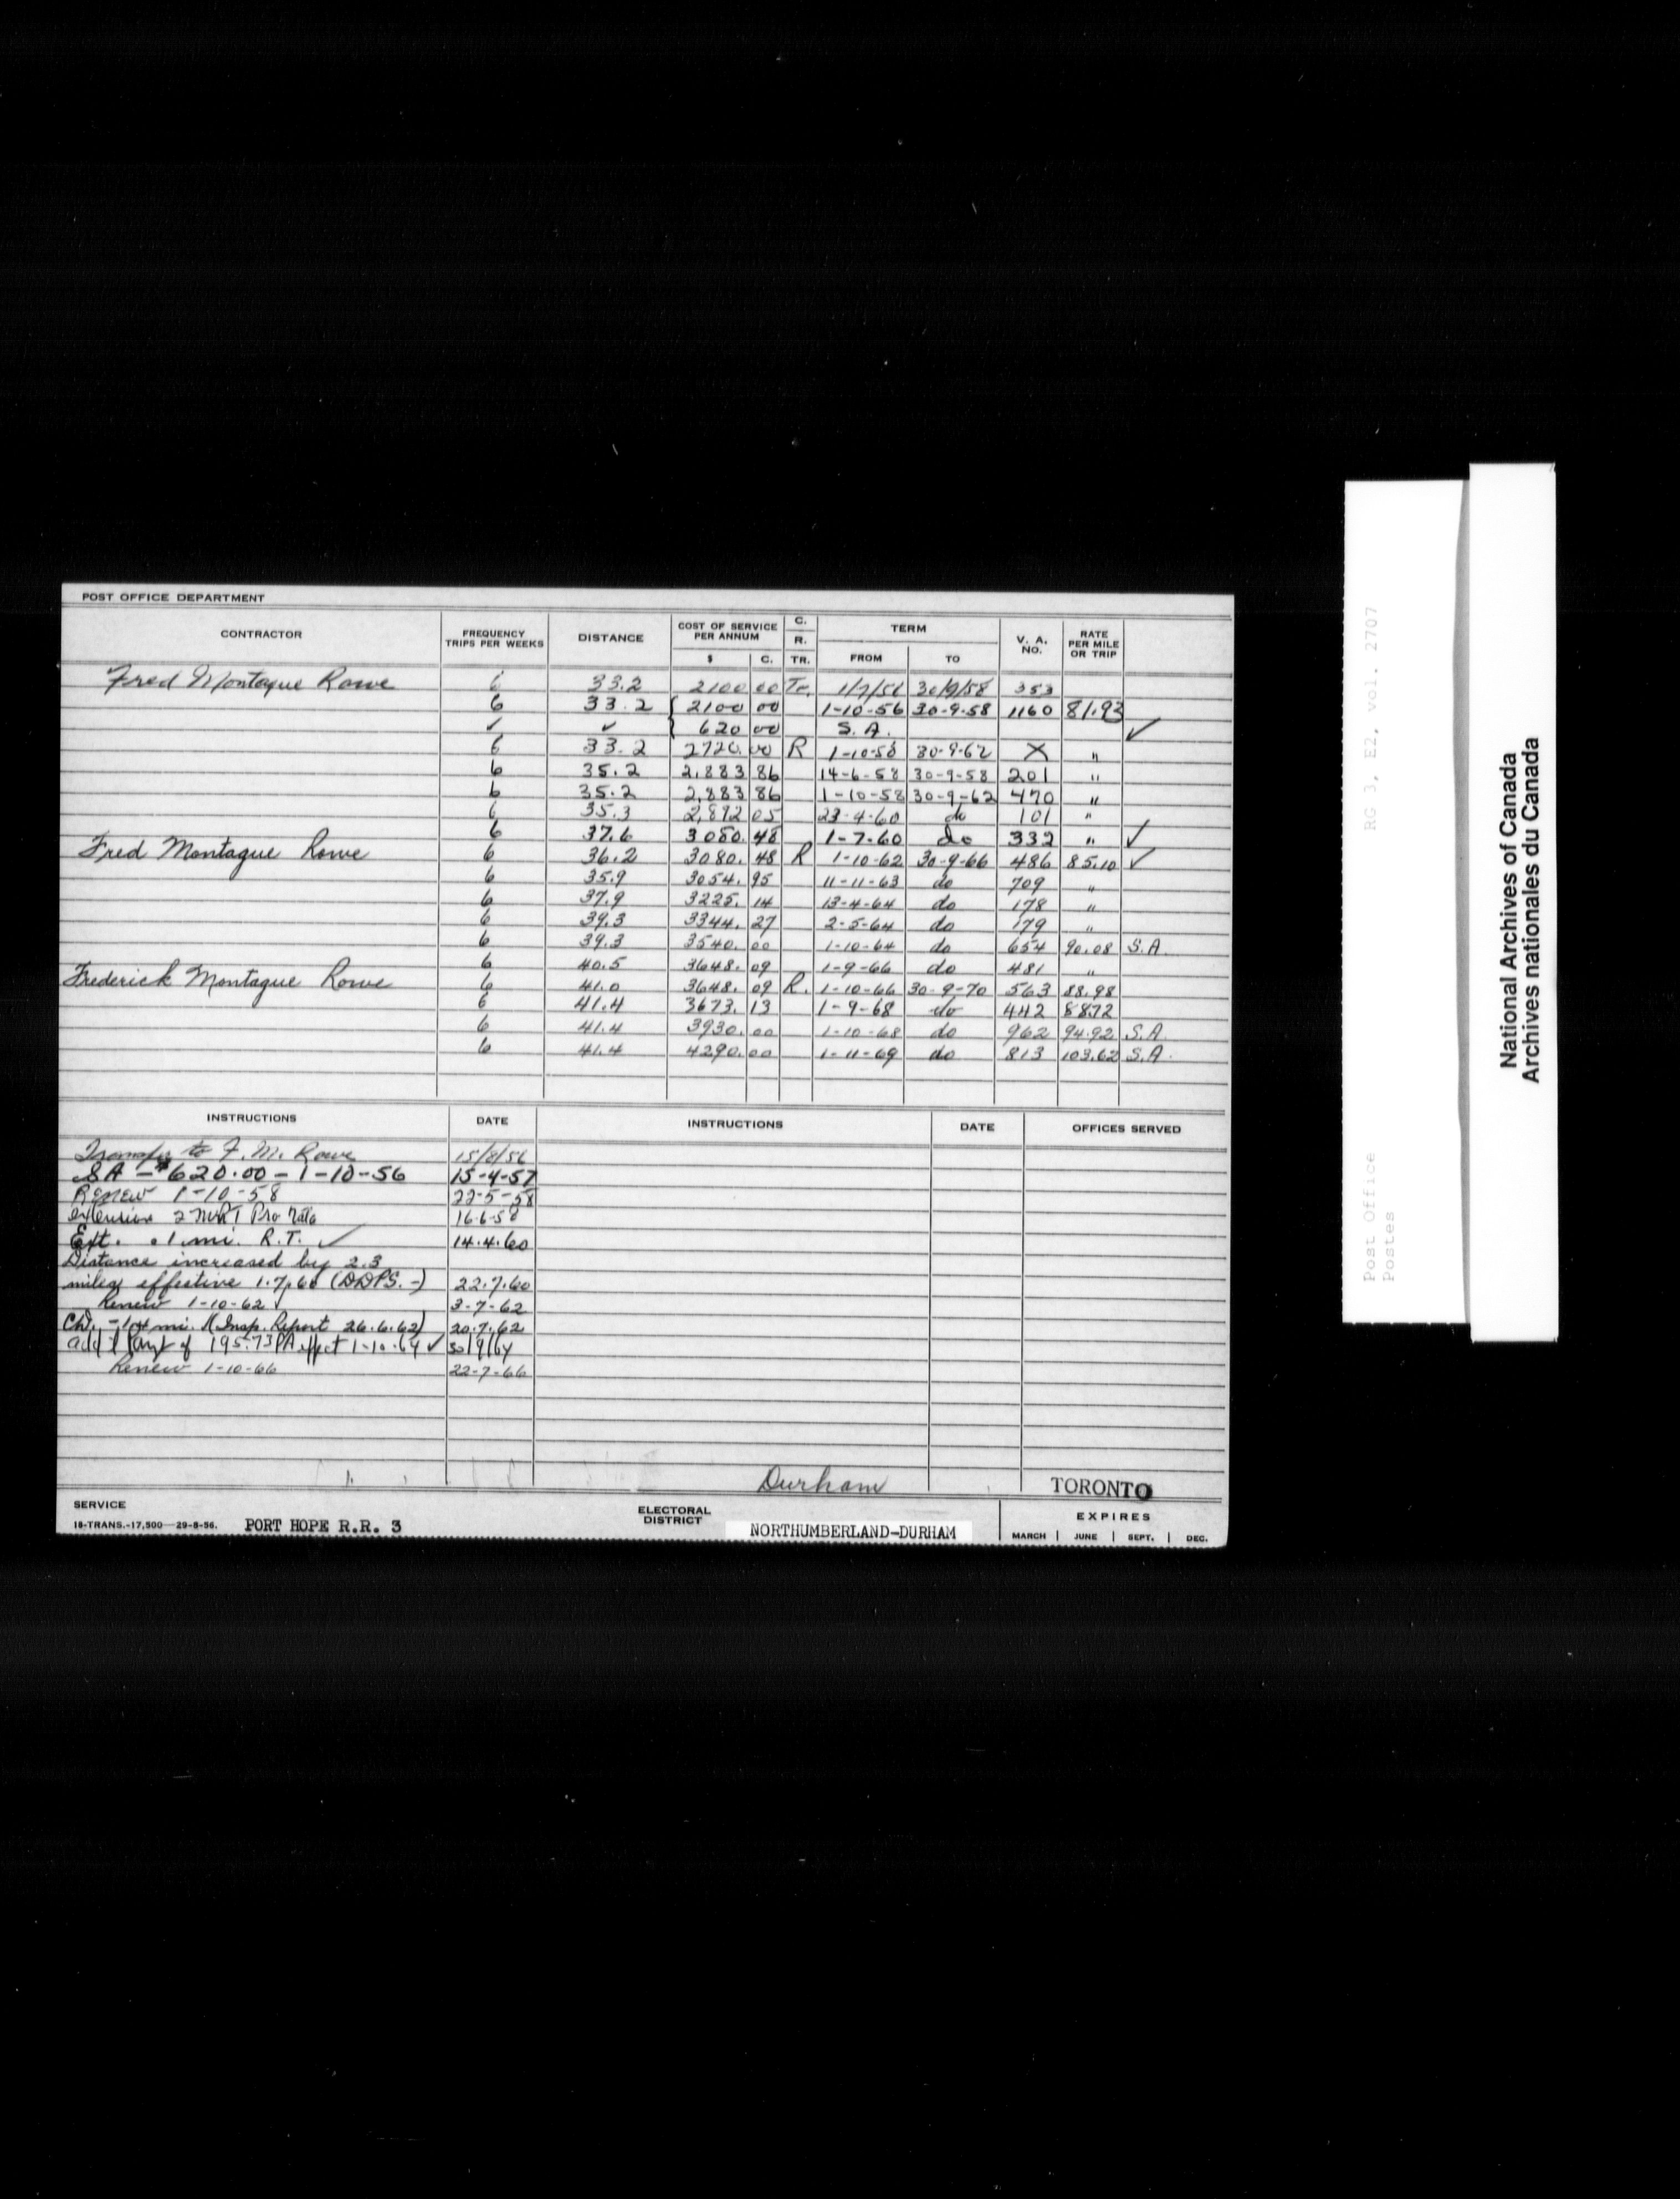 POST OFFICE DEPARTMENT
CONTRACTOR FREQUENCY TRIPS PER WEEKS DISTANCE COST OF SERVICE PER ANNUM $ C. C. R. TR. TERM FROM TO V. A. NO. RATE PER MILE OR TRIP
Fred Montague Rowe 6 33.2 2100 00 Tr. 1/7/56 30/9/58 353
6 33.2 { 2100 00 1-10-56 30-9-58 1160 81.93
✓ ✓ } 620 00 S.A. ✓
6 33.2 2720.00 R 1-10-58 30-9-62 X "
6 35.2 2,883 86 14-6-58 30-9-58 201 "
6 35.2 2,883 86 1-10-58 30-9-62 470 "
6 35.3 2,892 05 23-4-60 do 101 "
6 37.6 3080.48 1-7-60 do 332 " ✓
Fred Montague Rowe 6 36.2 3080.48 R 1-10-62 30-9-66 486 85.10 ✓
6 35.9 3054.95 11-11-63 do 709 "
6 37.9 3225.14 13-4-64 do 178 "
6 39.3 3344.27 2-5-64 do 179 "
6 39.3 3540.00 1-10-64 do 654 90.08 S.A.
6 40.5 3648.09 1-9-66 do 481 "
Frederick Montague Rowe 6 41.0 3648.09 R. 1-10-66 30-9-70 563 88.98
6 41.4 3673.13 1-9-68 do 442 88.72
6 41.4 3930.00 1-10-68 do 962 94.92 S.A.
6 41.4 4290.00 1-11-69 do 813 103.62 S.A.
INSTRUCTIONS DATE INSTRUCTIONS DATE OFFICES SERVED
Transfer to F. M. Rowe 15/8/56
SA - $620.00 - 1-10-56 15-4-57
Renew 1-10-58 22-5-58
extension 2 MRT Pro Rata 16-6-58
Ext. .1 mi. R.T. ✓ 14.4.60
Distance increased by 2.3
miles effective 1.7.60 (DDPS.-) 22.7.60
Renew 1-10-62 ✓ 3-7-62
Chd. -1.4 mi. (Insp. Report 26.6.62) 20.7.62
add'l Payt of 195.73 PA effect 1-10-64 ✓ 30/9/64
Renew 1-10-66 22-7-66
Durham TORONTO
SERVICE
18-TRANS.-17,500-29-8-56. PORT HOPE R.R. 3
ELECTORAL DISTRICT NORTHUMBERLAND-DURHAM
EXPIRES
MARCH | JUNE | SEPT. | DEC.
RG 3, E2, vol. 2707
Post Office
Postes
National Archives of Canada
Archives nationales du Canada